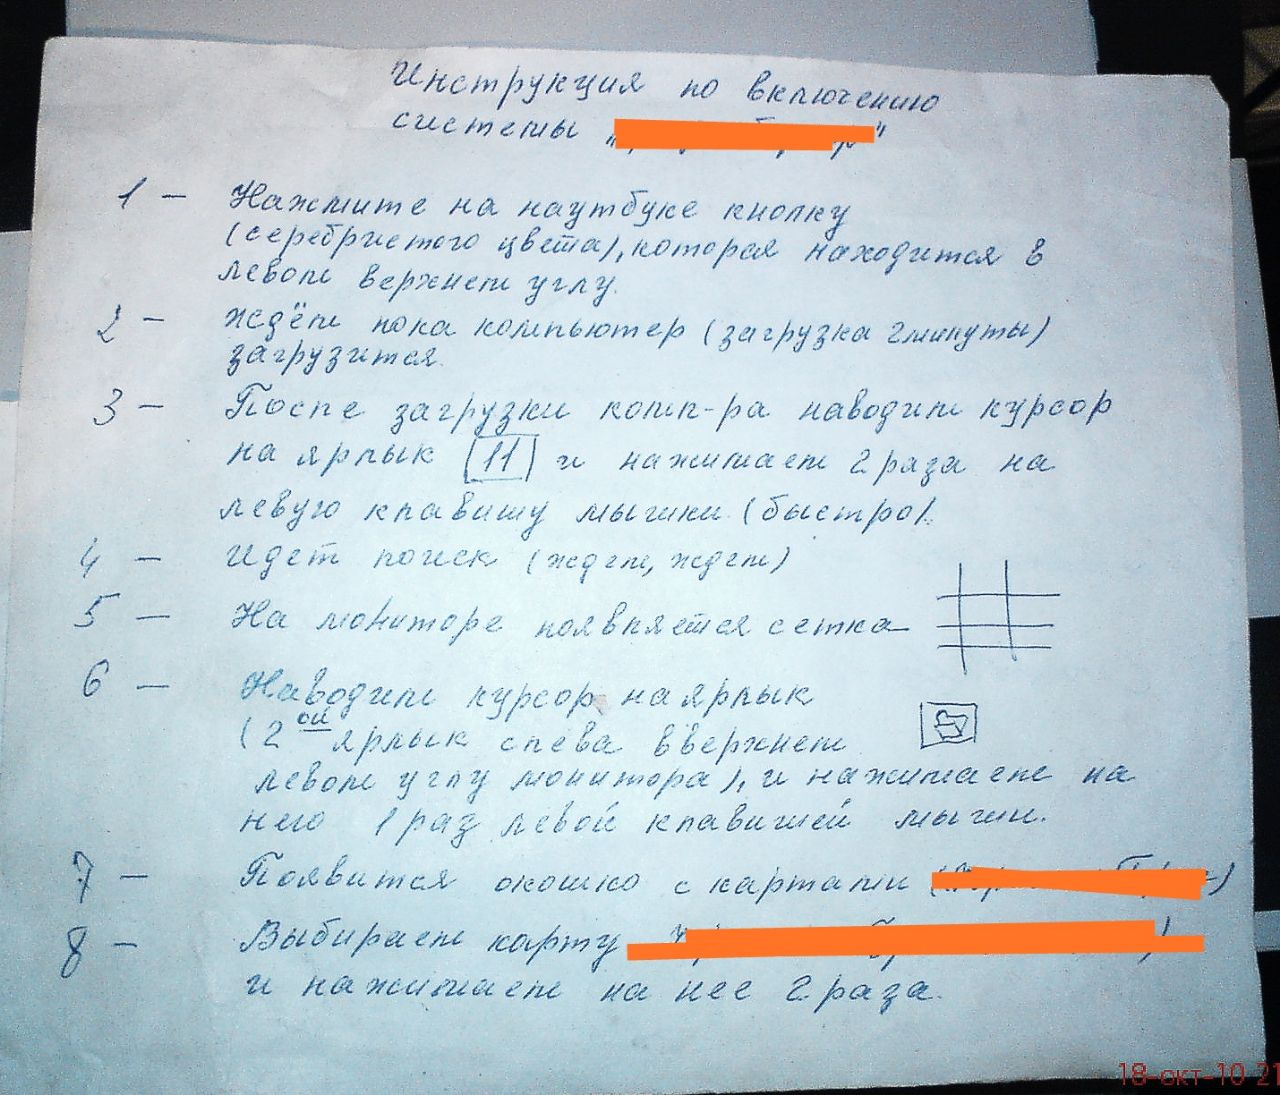 Инструкция по включению
системы "
1 – Нажмите на наутбуке кнопку
(серебристого цвета), которая находится в
левом верхнем углу.
2 – Ждём пока компьютер (загрузка 2 минуты)
загрузится.
3 – После загрузки комп-ра наводим курсор
на ярлык 11 и нажимаем 2 раза на
левую клавишу мышки (быстро).
4 – Идет поиск (ждем, ждем)
5 – На мониторе появляется сетка
6 – Наводим курсор на ярлык
(2ой ярлык слева вверхнем
левом углу монитора), и нажимаем на
него 1 раз левой клавишей мыши.
7 – Появится окошко с картами
8 – Выбираем карту
и нажимаем на нее 2 раза.
18-окт-10 21